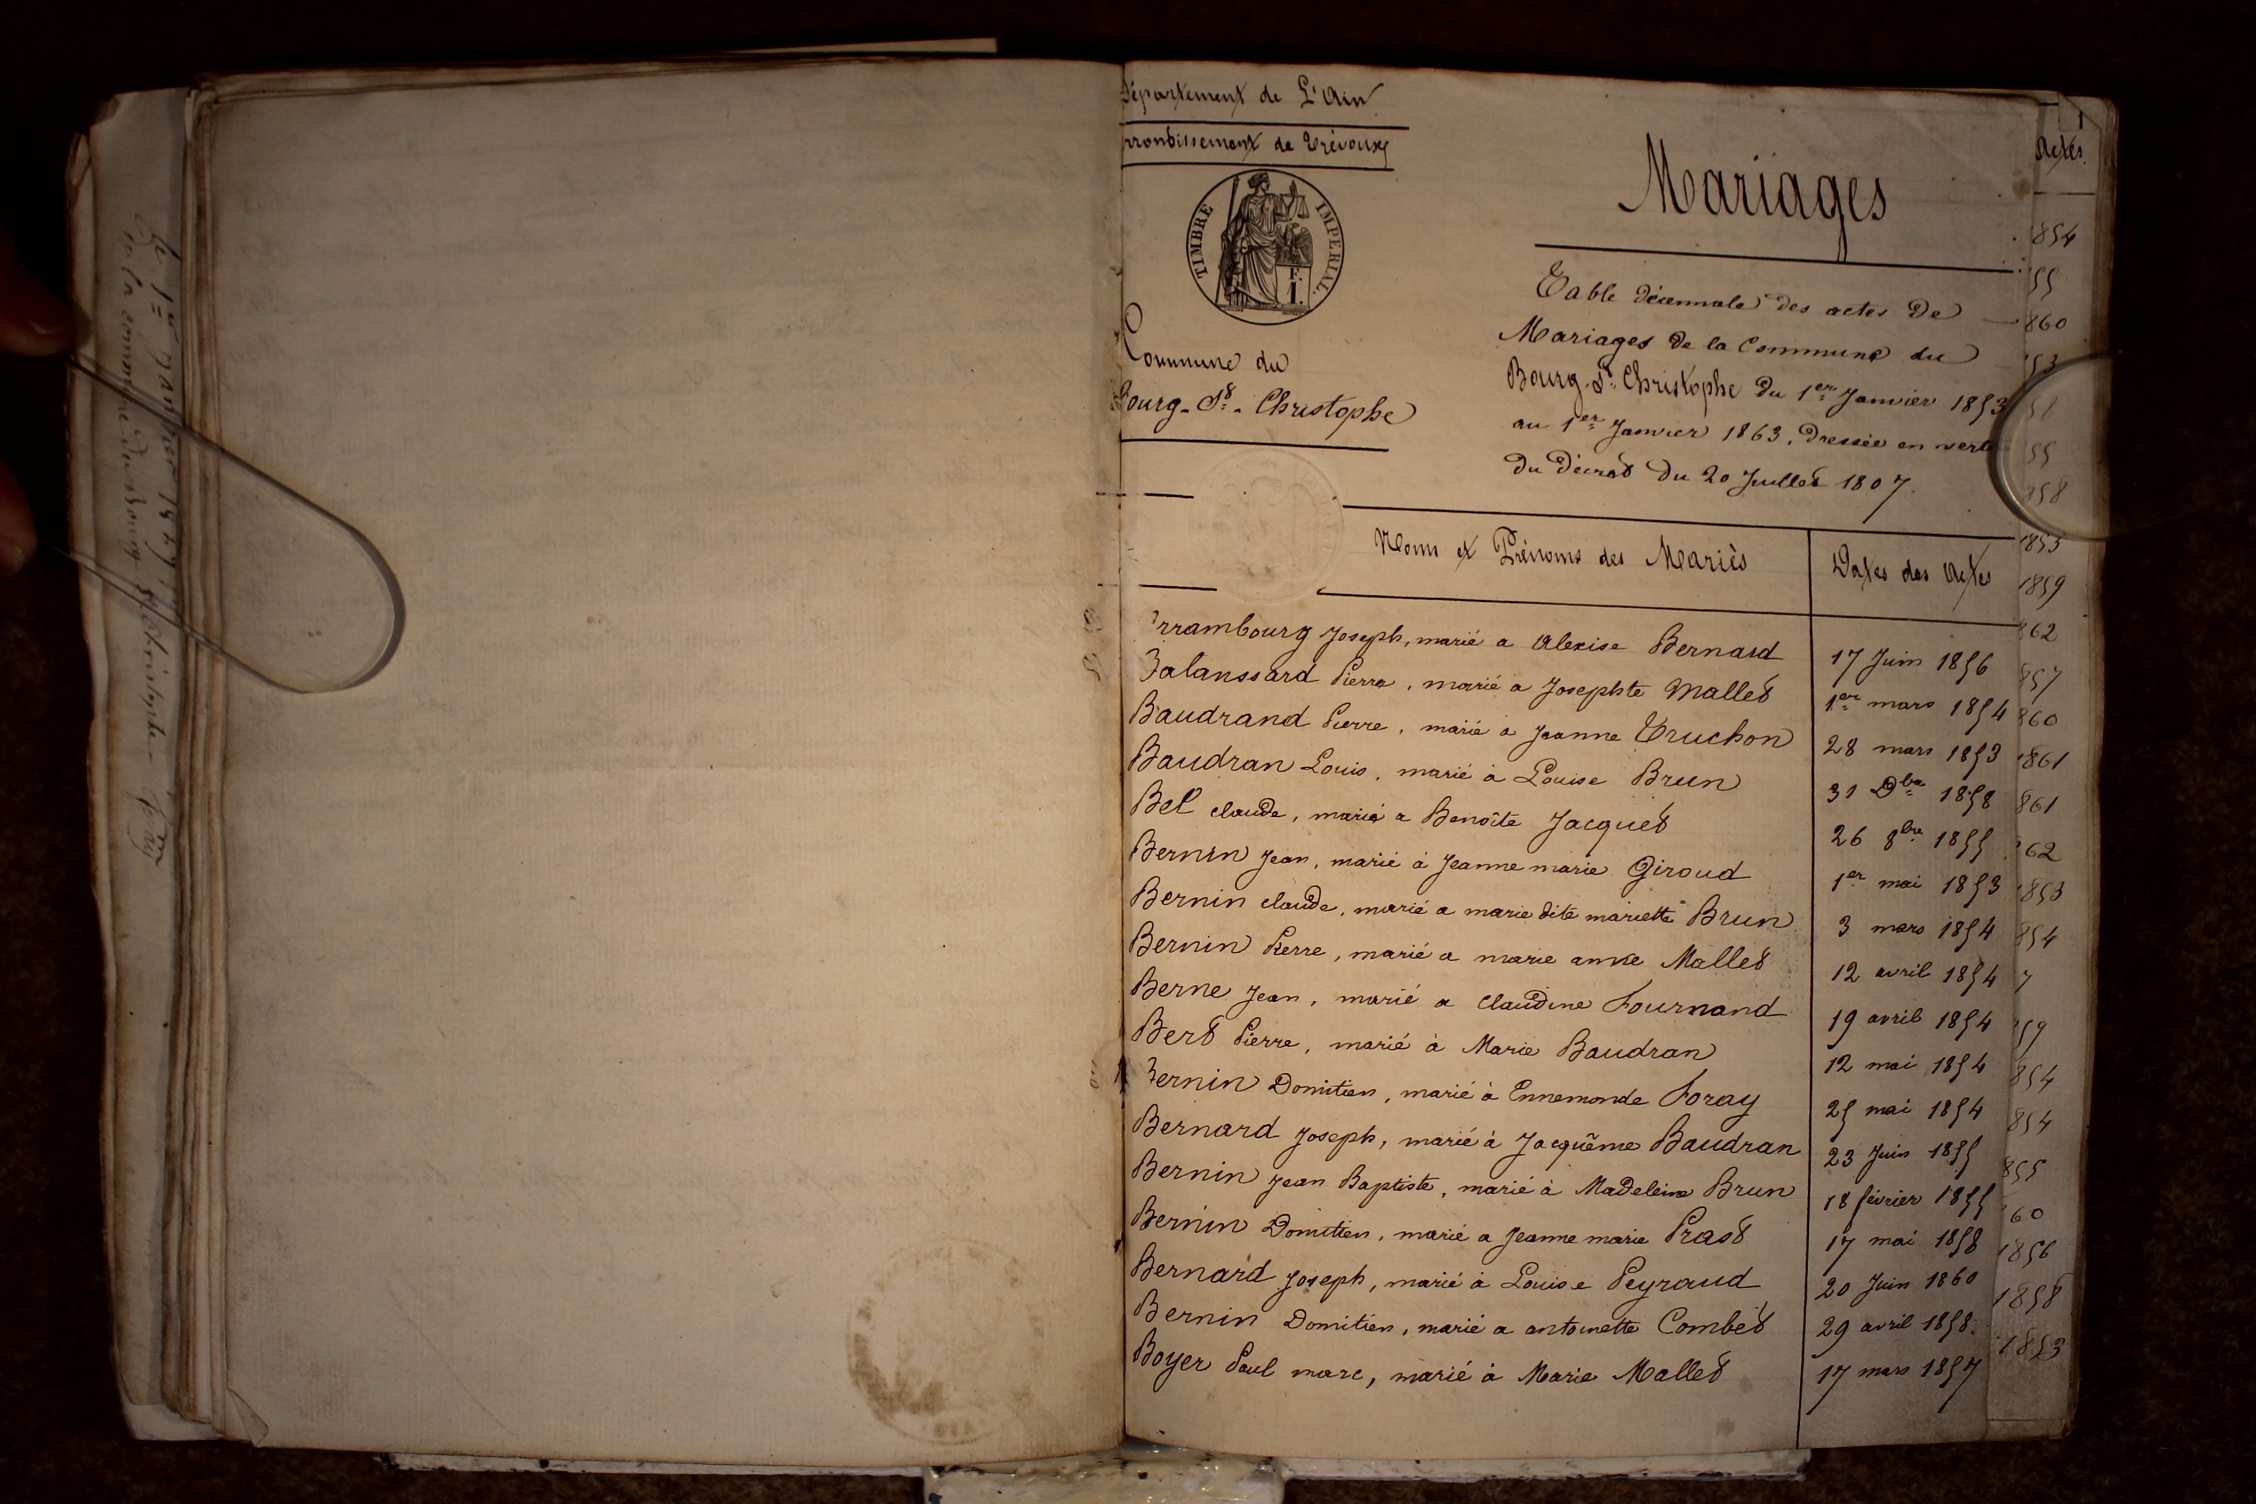 Département de L'Ain
rrondissement de Trévoux
TIMBRE IMPERIAL.
E. I.
Commune du
Bourg-St-Christophe
Mariages
Table décennale des actes De
Mariages de la Commune du
Bourg-St Christophe du 1er Janvier 1853
au 1er Janvier 1863, Dressée en vertu
du Décret du 20 Juillet 1807.
Noms et Prénoms des Mariés Dates des Actes
rrambourg Joseph, marié a Alexise Bernard 17 Juin 1856
Balanssard Pierre, marié a Josephte Mallet 1er mars 1854
Baudrand Pierre, marié a Jeanne Truchon 28 mars 1853
Baudran Louis, marié à Louise Brun 31 Dbre 1858
Bel claude, marié a Benoîte Jacquet 26 8bre 1855
Bernin Jean, marié à Jeanne marie Giroud 1er mai 1853
Bernin claude, marié a marie dite mariette Brun 3 mars 1854
Bernin Pierre, marié a marie anne Mallet 12 avril 1854
Berne Jean, marié a Claudine Fournand 19 avril 1854
Bert Pierre, marié à Marie Baudran 12 mai 1854
Bernin Domitien, marié à Ennemonde Foray 25 mai 1854
Bernard Joseph, marié à Jacquême Baudran 23 Juin 1855
Bernin Jean Baptiste, marié à Madeleine Brun 18 février 1855
Bernin Domitien, marié a Jeanne marie Prast 17 mai 1858
Bernard Joseph, marié à Louise Peyraud 20 Juin 1860
Bernin Domitien, marié a antoinette Combet 29 avril 1858.
Boyer Paul marc, marié à Marie Mallet 17 mars 1857
Actes.
1854
55
860
53
51
55
858
1853
1859
862
857
860
1861
861
62
1853
854
7
59
854
854
855
60
1856
1858
1853